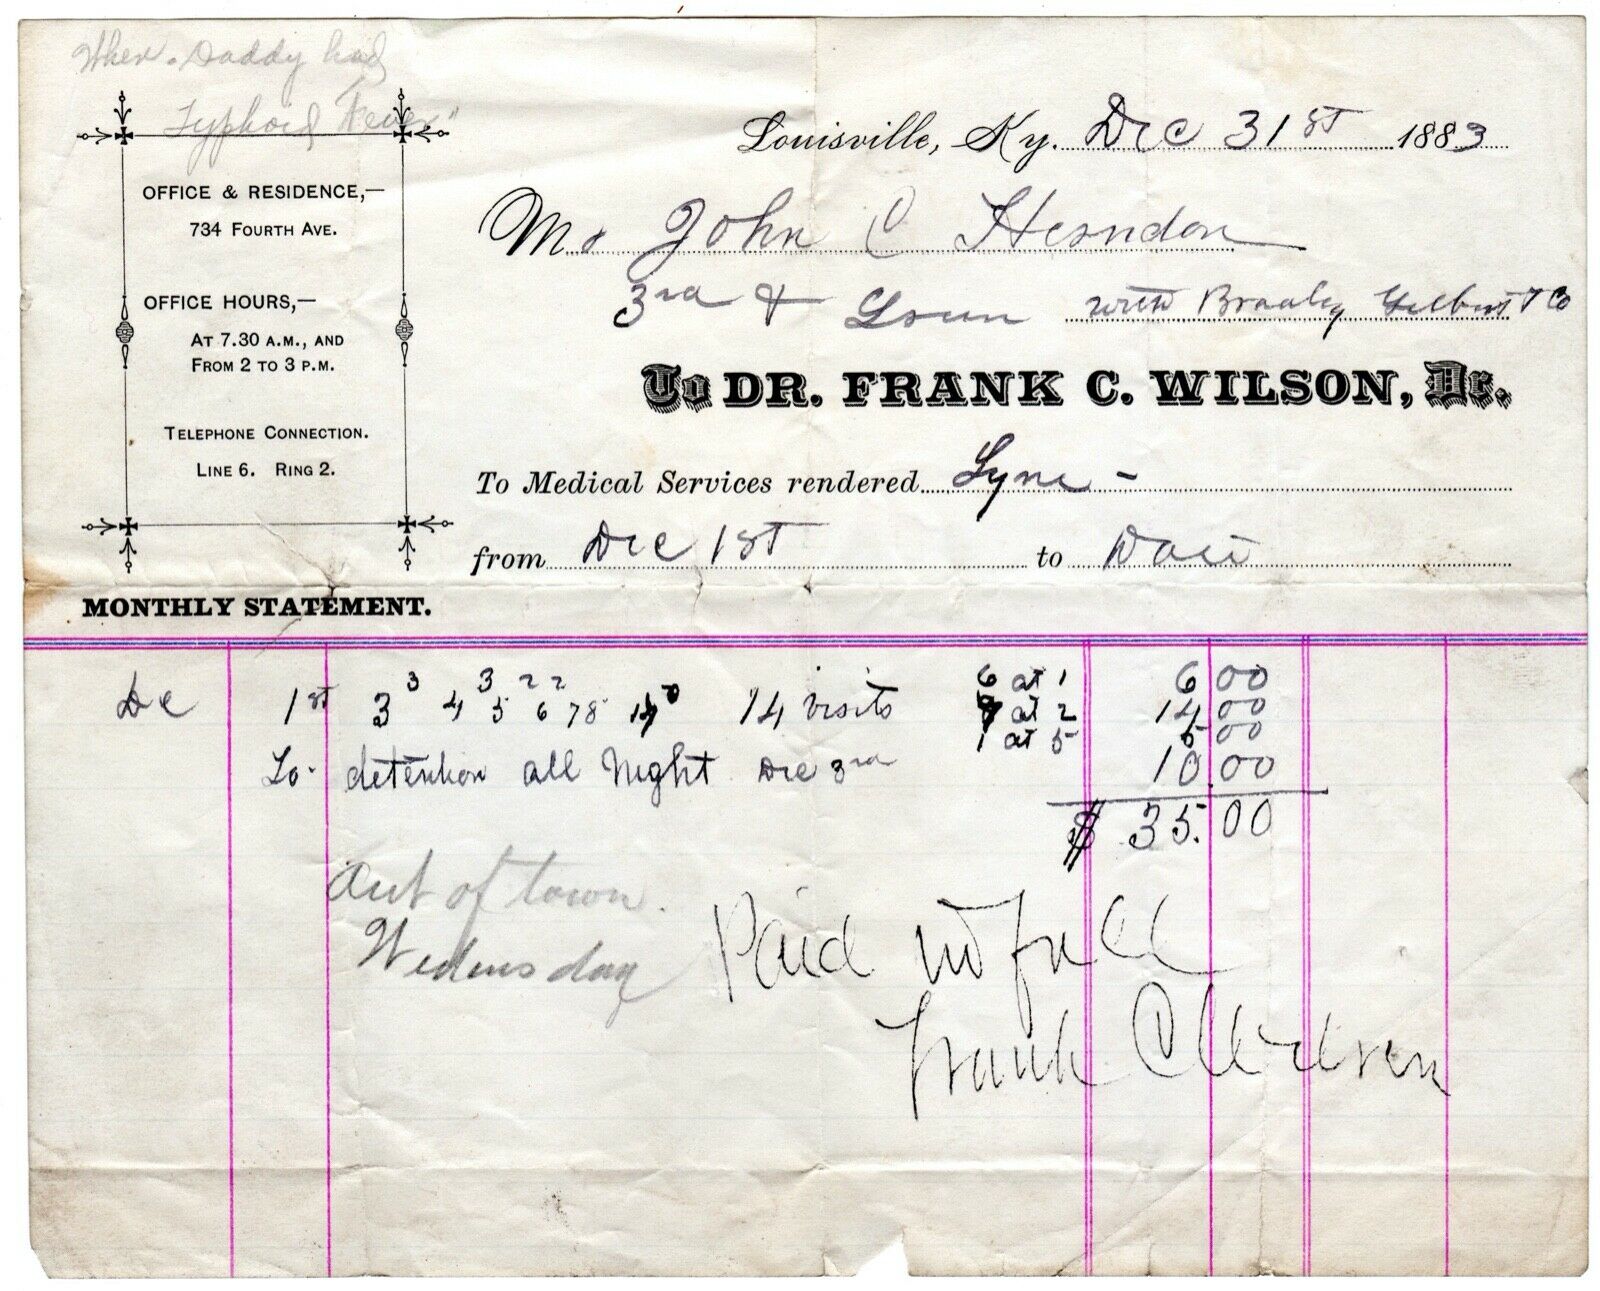 When Daddy had
Typhoid Fever"
OFFICE & RESIDENCE,—
734 FOURTH AVE.
OFFICE HOURS,—
AT 7.30 A.M., AND
FROM 2 TO 3 P.M.
TELEPHONE CONNECTION.
LINE 6. RING 2.
Louisville, Ky. Dec 31st 1883
Mr John C Herndon
3rd & with Gilbert & Co
To DR. FRANK C. WILSON, Dr.
To Medical Services rendered Lyne -
from Dec 1st to Date
MONTHLY STATEMENT.
3 3 2 2
Dec 1st 3 4 5 6 7 8 14 visits 6 at 1 6 00
7 at 2 14 00
1 at 5 5 00
To detention all Night Dec 3rd 10.00
$ 35.00
Out of town
Wednesday
Paid in full
Frank C Wilson